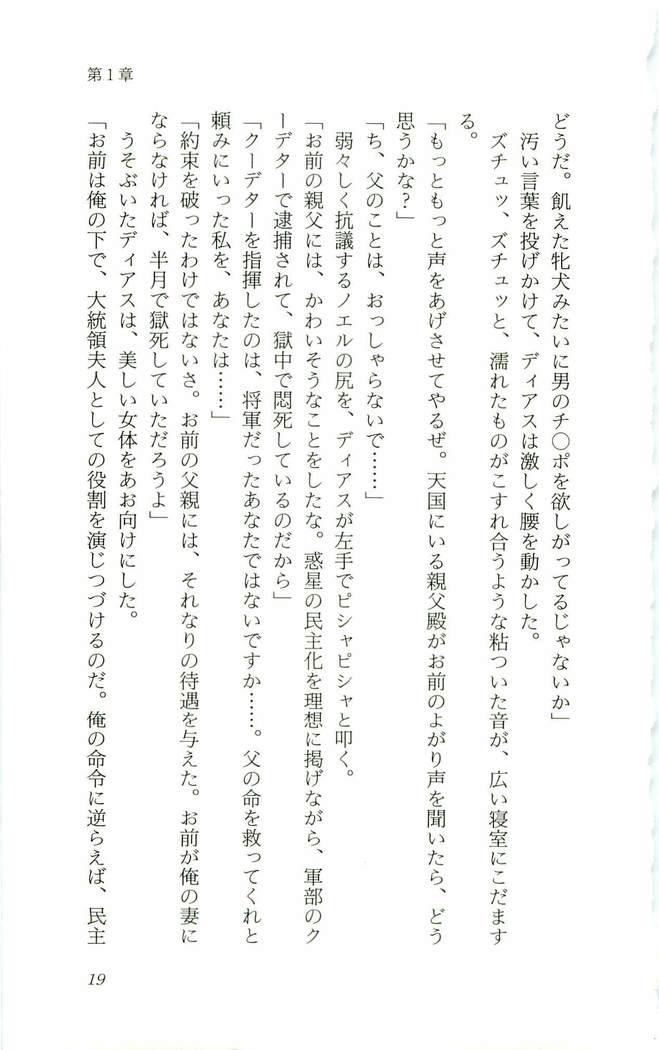 第1章
どうだ。飢えた牝犬みたいに男のチ○ポを欲しがってるじゃないか」
汚い言葉を投げかけて、ディアスは激しく腰を動かした。
ズチュッ、ズチュッと、濡れたものがこすれ合うような粘ついた音が、広い寝室にこだます
る。
「もっともっと声をあげさせてやるぜ。天国にいる親父殿がお前のよがり声を聞いたら、どう
思うかな？」
「ち、父のことは、おっしゃらないで……」
弱々しく抗議するノエルの尻を、ディアスが左手でピシャピシャと叩く。
「お前の親父には、かわいそうなことをしたな。惑星の民主化を理想に掲げながら、軍部のク
ーデターで逮捕されて、獄中で悶死しているのだから」
「クーデターを指揮したのは、将軍だったあなたではないですか……。父の命を救ってくれと
頼みにいった私を、あなたは……」
「約束を破ったわけではないさ。お前の父親には、それなりの待遇を与えた。お前が俺の妻に
ならなければ、半月で獄死していただろうよ」
うそぶいたディアスは、美しい女体をあお向けにした。
「お前は俺の下で、大統領夫人としての役割を演じつづけるのだ。俺の命令に逆らえば、民主
19